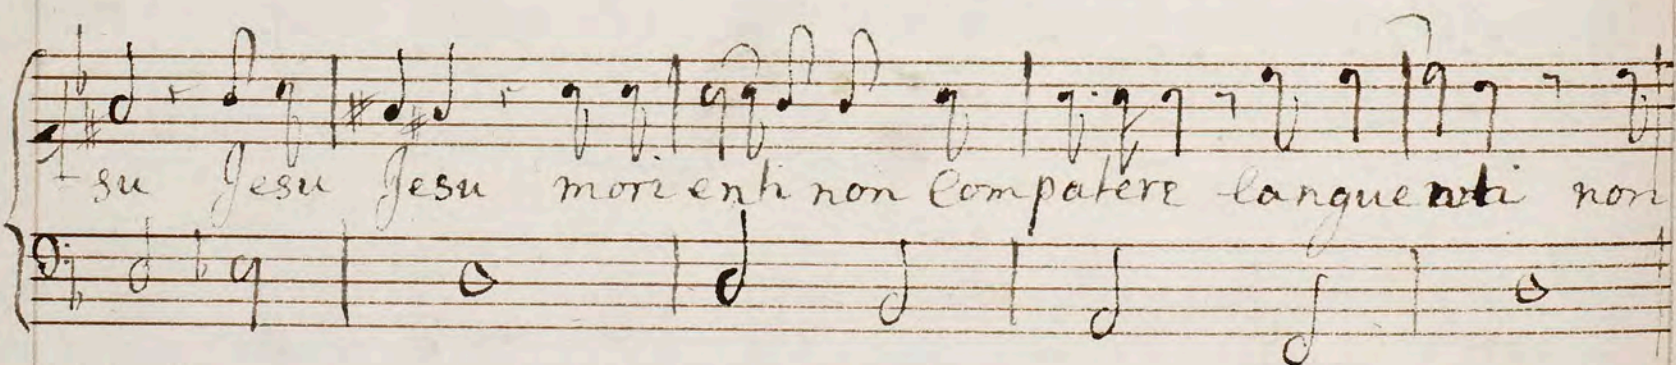 su Jesu Jesu morienti non Compatere languenti non